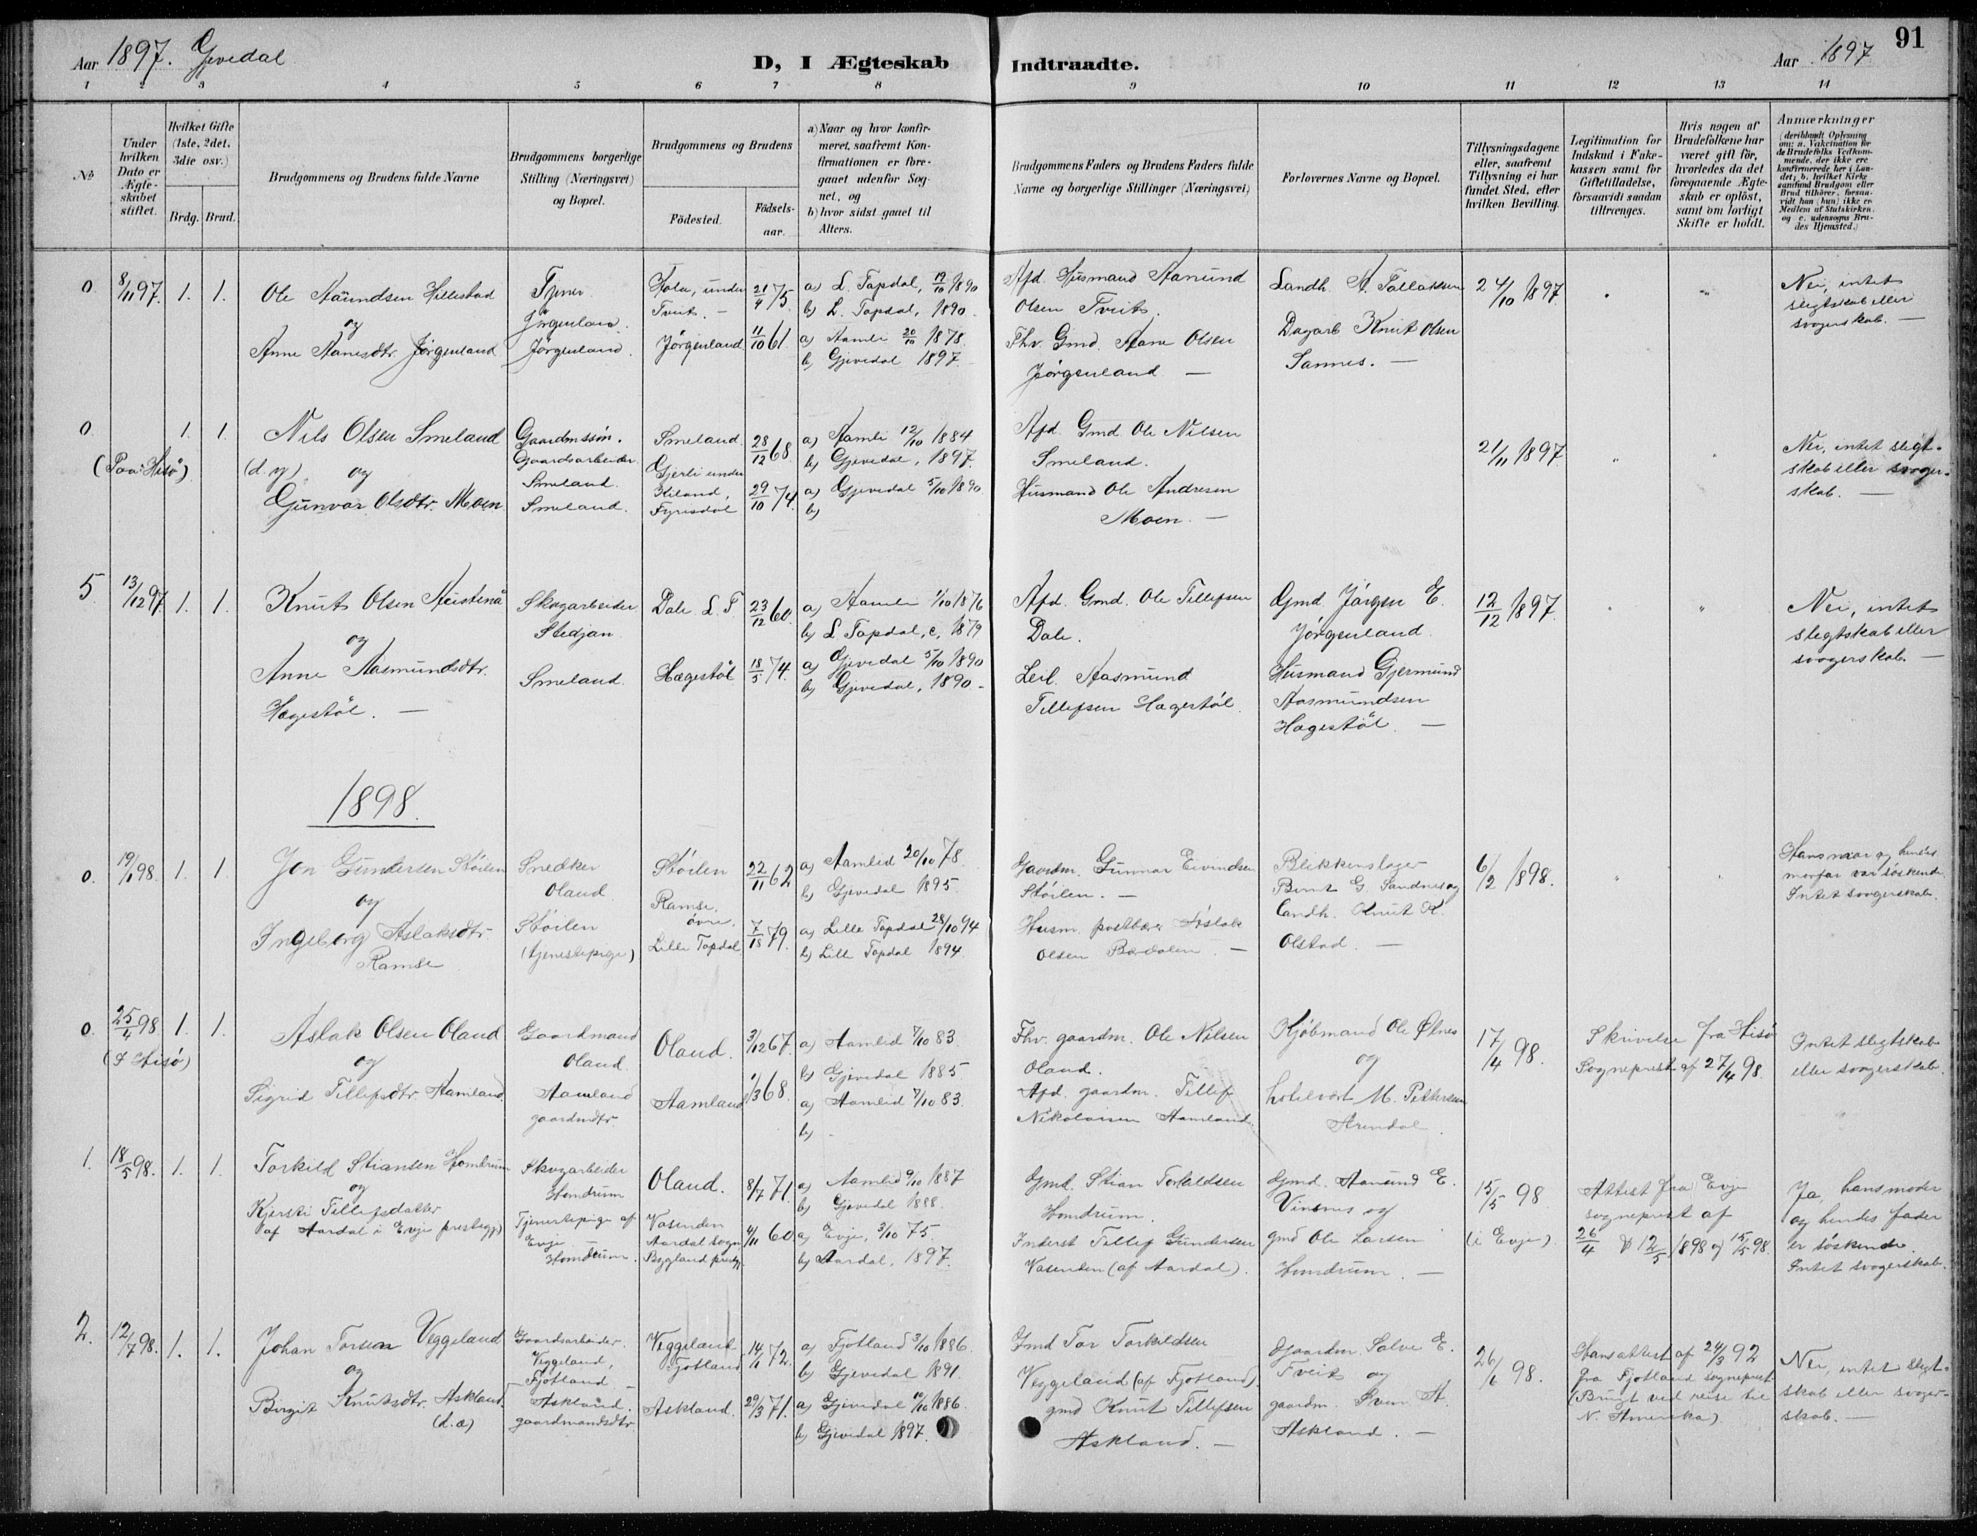 Aar 1897. Gjevedal
D, I Ægteskab
Indtraadte.
Aar 1897
91
1 2 3 4 5 6 7 8 9 10 11 12 13 14
No
Under hvilken Dato er Ægteskabet stiftet.
Hvilket Gifte (1ste, 2det, 3die osv.)
Brdg. Brud.
Brudgommens og Brudens fulde Navne
Brudgommens borgerlige Stilling (Næringsvei) og Bopæl.
Brudgommens og Brudens
Fødested.
Fødselsaar.
a) Naar og hvor konfirmeret, saafremt Konfirmationen er foregaaet udenfor Sognet, og
b) hvor sidst gaaet til Alters.
Brudgommens Faders og Brudens Faders fulde Navne og borgerlige Stillinger (Næringsvei)
Forlovernes Navne og Bopæl.
Tillysningsdagene eller, saafremt Tillysning ei har fundet Sted, efter hvilken Bevilling.
Legitimation for Indskud i Enkekassen samt for Giftetilladelse, forsaavidt saadan tiltrænges.
Hvis nogen af Brudefolkene har været gift før, hvorledes da det foregaaende Ægteskab er opløst, samt om lovligt Skifte er holdt.
Anmærkninger
(deriblandt Oplysning om: a. Vakcination for de Brudefolks Vedkommende, der ikke ere konfirmerede her i Landet; b. hvilket Kirkesamfund Brudgom eller Brud tilhører, forsaavidt han (hun) ikke er Medlem af Statskirken, og c. udensogns Brudes Hjemsted.)
0 8/11 97. 1. 1.
Ole Aanundsen Hillestad
og
Anne Aanesdtr. Jørgenland
Tjener
Jørgenland.
Jørgenland.
under Tveit. —
Jørgenland
21/4 75
11/10 61.
a) L. Topdal, 19/10 1890
b) L. Topdal, 1890.
a) Aamli 20/10 1878.
b) Gjevedal 1897.
Afd. Husmand Aanund
Olsen Tveit.
Fhv. Gmd. Aane Olsen
Jørgenland —
Landh. A. Tallaksen
Dagarb. Knut Olsen
Sannes. —
24/10 1897
Nei, intet
slegtskab eller
svogerskab. —
0 1. 1.
(Paa Hisø)
Nils Olsen Smeland
(d. y.) og
Gunvor Olsdtr. Moen
Gaardmssøn.
Gaardsarbeider
Smeland.
Smeland.
Smeland
Gjerli under
Fyrisdal
28/12 68
29/10 74.
a) Aamli 12/10 1884
b) Gjevedal, 1897.
a) Gjevedal 5/10 1890
b)
Afd. Gmd. Ole Nilsen
Smeland.
Husmand Ole Andresen
Moen. —
21/11 1897
Nei, intet slegt-
skab eller svoger-
skab. —
5 13/12 97 1. 1.
Knut Olsen Austenå
og
Anne Aasmundsdtr.
Hægestøl. —
Skogarbeider
Stedjan.
Smeland.
Dale L. T
Hægestøl
23/12 60.
18/5 74.
a) Aamli 1/10 1876
b) L Topdal, c, 1879
a) Gjevedal 5/10 1890
b) Gjevedal, 1890 -
Afd. Gmd. Ole Tellefsen
Dale.
Leil. Aasmund
Tellefsen Hægestøl.
Gmd. Jørgen E.
Jørgenland.
Husmand Gjermund
Aasmundsen
Hægestøl. —
12/12 1897.
Nei, intet
slegtskab eller
svogerskab. —
1898.
0. 19/ 98. 1. 1.
Jon Gundersen Støilen
og
Ingeborg Aslaksdtr
Ramse
Snedker
Oland.
Støilen
(tjenestepige)
Støilen
Ramse,
øvre,
Lille Topdal
22/11 62
7/ 79.
a) Aamlid 20/10 78.
b) Gjevedal 1895.
a) Lille Topdal 28/10 94
b) Lill Topdal 1894.
Gaardm. Gunnar Eivindsen
Støilen. —
Husm. postbærer Aslak
Olsen —
Blikkenslager
Bernt G. Sandnes og
Landh. Knut K.
Olstad. —
6/2 1898.
Hans mor og hendes
morfar var søskende.
Intet svogerskab.
0. 25/4 98 1. 1.
(I Hisø)
Aslak Olsen Oland
og
Sigrid Tellefsdtr. Aamland
Gaardmand
Oland.
Aamland
gaardmdtr.
Oland.
Aamland
3/12 67.
1/3 68.
a) Aamlid 7/10 83.
b) Gjevedal 1885
a) Aamlid 7/10 83.
b) -
Fhv. gaardm. Ole Nilsen
Oland.
Afd. gaardm. Tellef
Nikolaisen Aamland.
Kjøbmand Ole Øines
og
hotelvært M. Pettersen
Arendal.
17/4 98.
Skrivelse fra Hisø
Sogneprest af 27/4 98.
Intet slegtskab
eller svogerskab.
1. 18/5 98. 1. 1.
Torkild Stiansen Homdrum
og
Kjersti Tellefsdatter
(af Aardal i Evje prestegj)
Skogarbeider
Homdrum
Tjenestepige af
Evje —
Homdrum.
Oland.
Vasenden
Aardal sogn
Bygland prstgj.
8/7 71.
4/11 60.
a) Aamlid 9/10 1887
b) Gjevedal 1888.
a) Evje, 3/10 75.
b) Aardal, 1897.
Gmd. Stian Torkildsen
Homdrum.
Inderst Tellef Gundersen
Vasenden (af Aardal).
Gmd. Aanund E.
Vinenes og
gmd Ole Larsen
Homdrum. —
15/5 98
(i Evje).
Attest fra Evje
sogneprest af
26/4 & 12/5 1898 og 15/5 98.
Ja, hans moder
og hendes fader
er søskende.
Intet svogerskab.
2. 12/7 98. 1. 1.
Johan Torsen Veggeland
og
Birgit Knutsdtr. Askland
(d.a)
Gaardsarbeider
Veggeland,
Fjotland —
Askland.
gaardmandsdtr.
Veggeland
Fjotland
Askland.
14/1 72.
29/3 71.
a) Fjotland 3/10 1886.
b) Gjevedal 1891.
a) Gjevedal 10/10 1886
b) Gjevedal 1897.
Gmd Tor Torkildsen
Veggeland (af Fjotland).
gmd Knut Tellefsen
Askland. —
Gaardm. Salve E.
Tveit og
gaardm. Sven A.
Askland. —
26/6 98.
Hans attest af 24/3 92
fra Fjotland sogneprest
(Brugt ved reise til
N. Amerika)
Nei, intet slegt-
skab eller svoger-
skab. —